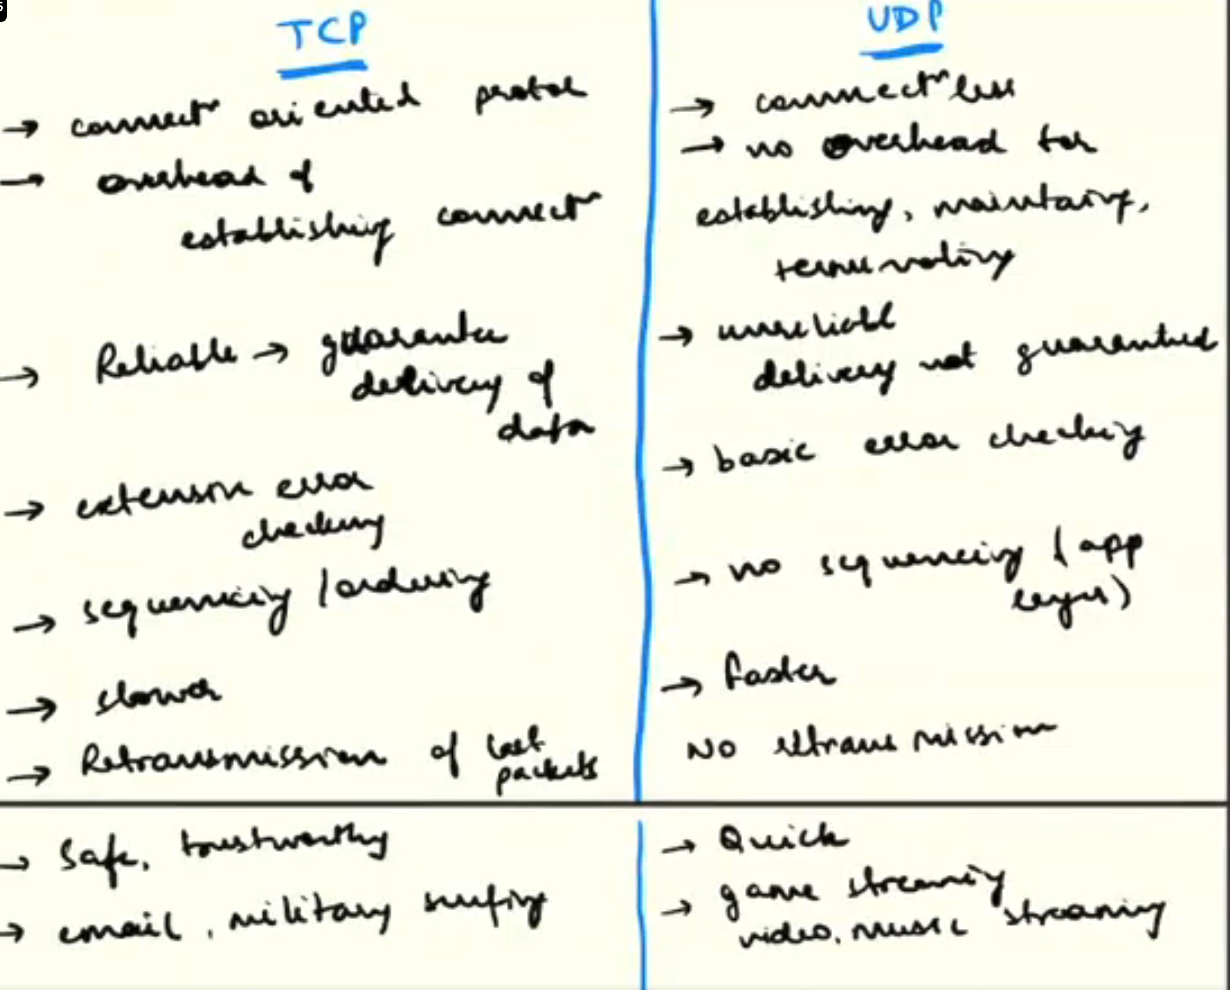 TCP
→ connectn oriented protol
→ overhead of
establishing connectn
→ Reliable → guarantee
delivery of
data
→ extension error
checking
→ sequencing / ordering
→ slower
→ Retransmission of lost
packets
→ Safe, trustworthy
→ email, military surfing
UDP
→ connectn less
→ no overhead for
establishing, maintaing,
terminating
→ unreliable
delivery not guaranteed
→ basic error checking
→ no sequencing (app
layer)
→ faster
No retransmission
→ Quick
→ game streaming
video, music streaming